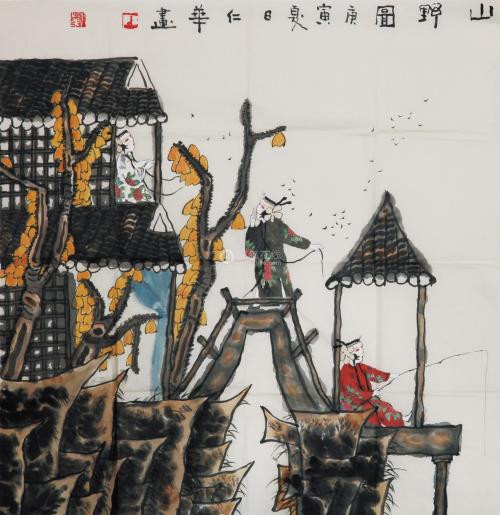 山野圖庚寅夏日仁華畫